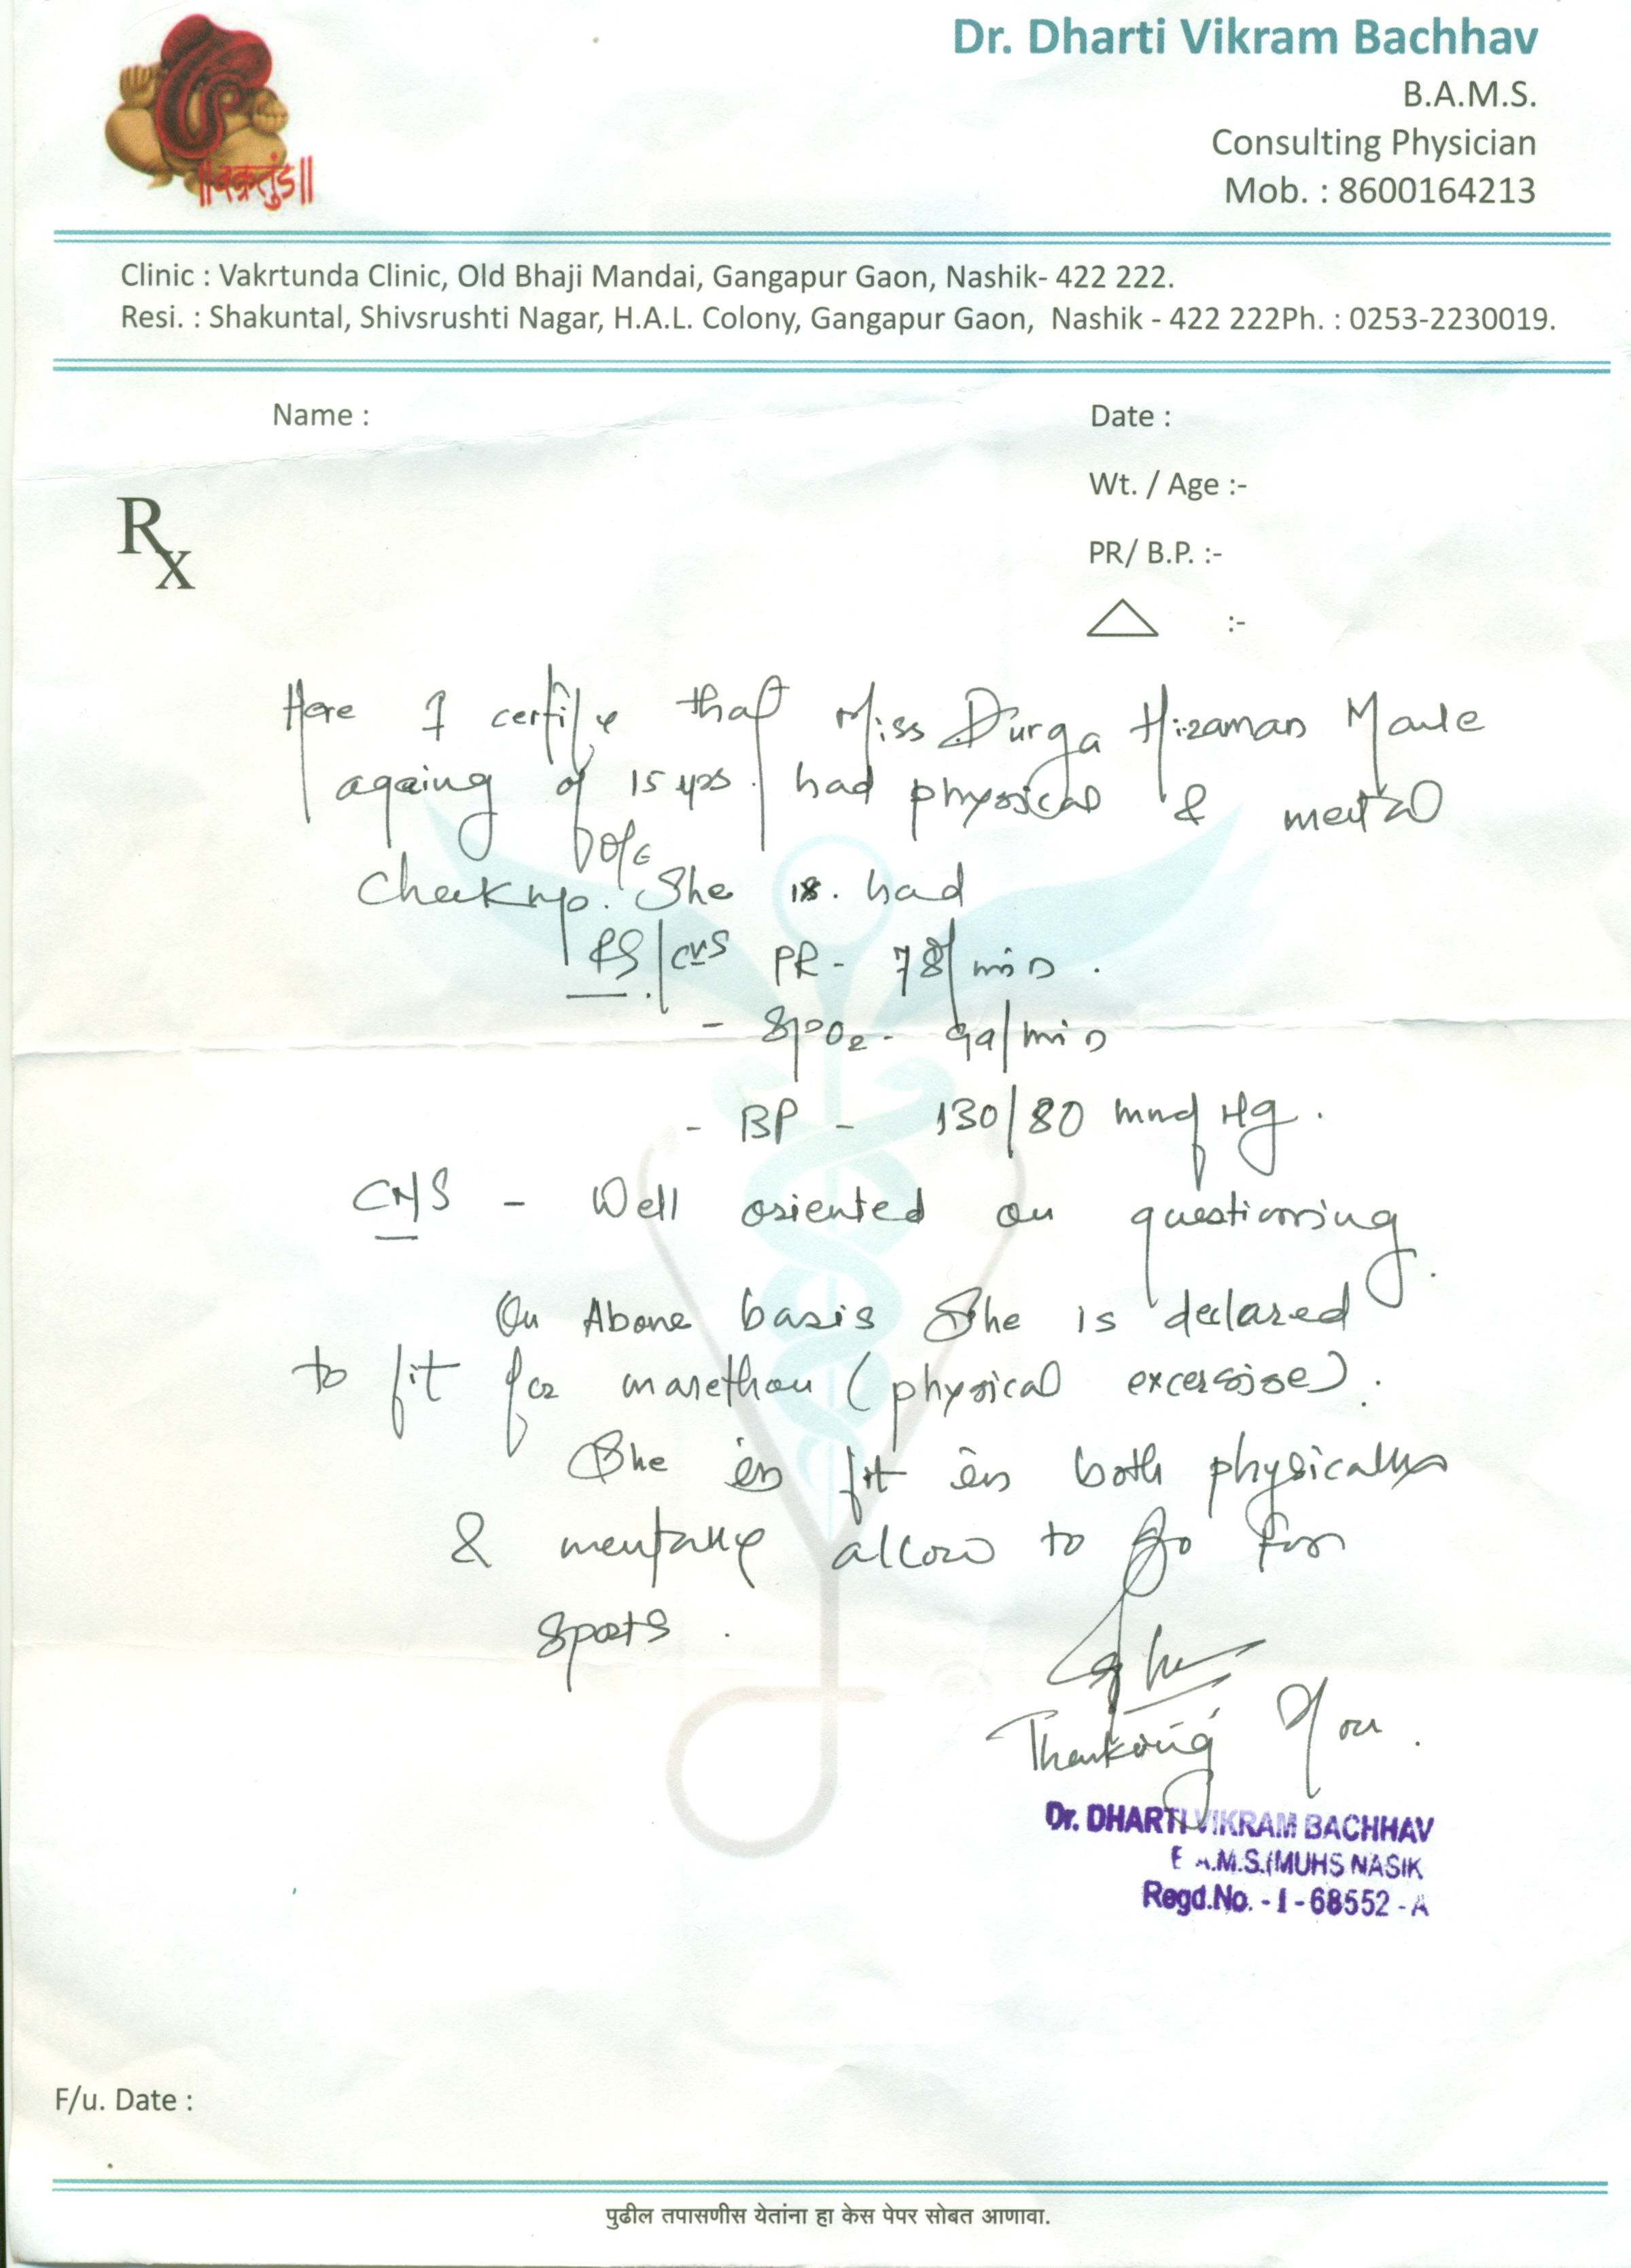 ॥वक्रतुंड॥
Dr. Dharti Vikram Bachhav
B.A.M.S.
Consulting Physician
Mob. : 8600164213
Clinic : Vakrtunda Clinic, Old Bhaji Mandai, Gangapur Gaon, Nashik- 422 222.
Resi. : Shakuntal, Shivsrushti Nagar, H.A.L. Colony, Gangapur Gaon, Nashik - 422 222Ph. : 0253-2230019.
Name :
Date :
Wt. / Age :-
Rx
PR/ B.P. :-
:-
Here I certify that Miss Durga Hiraman
agaeing of 15 yrs. had physical & mental
o/e
Checkup. She is. had
RS/CVS PR - 78/min .
- SpO2 - 99/min
- BP - 130/80 mmof Hg .
CNS - Well oriented on questioning .
On Above basis She is declared
to fit for marethon (physical excersise) .
She is fit in both physically
& mentally allow to go for
sports .
Thanking You .
Dr. DHARTI VIKRAM BACHHAV
B.A.M.S.(MUHS NASIK
Regd.No. - I - 68552 - A
F/u. Date :
पुढील तपासणीस येतांना हा केस पेपर सोबत आणावा.